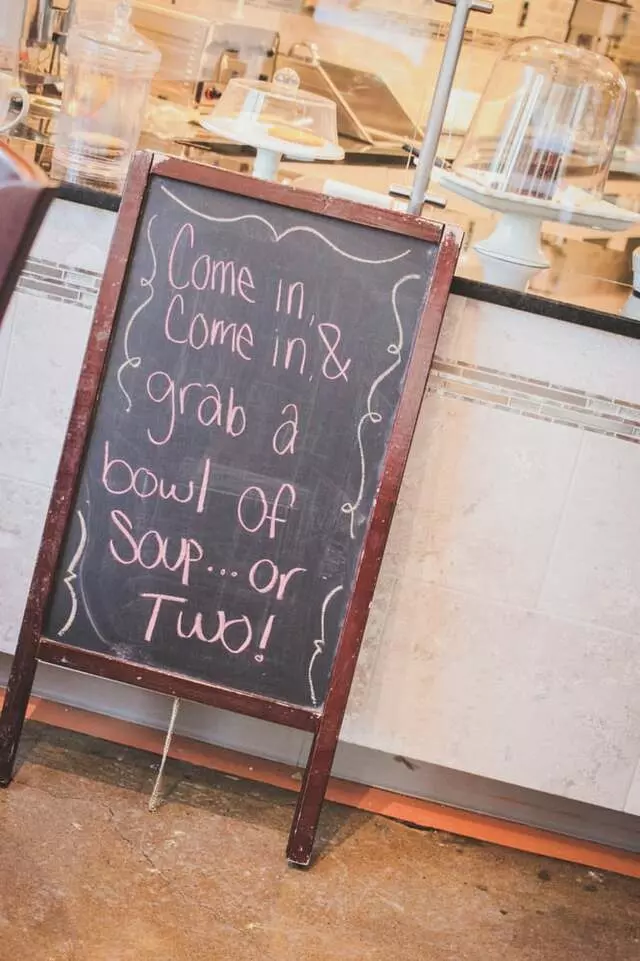 Come in,
Come in, &
grab a
bowl of
Soup...or
Two!